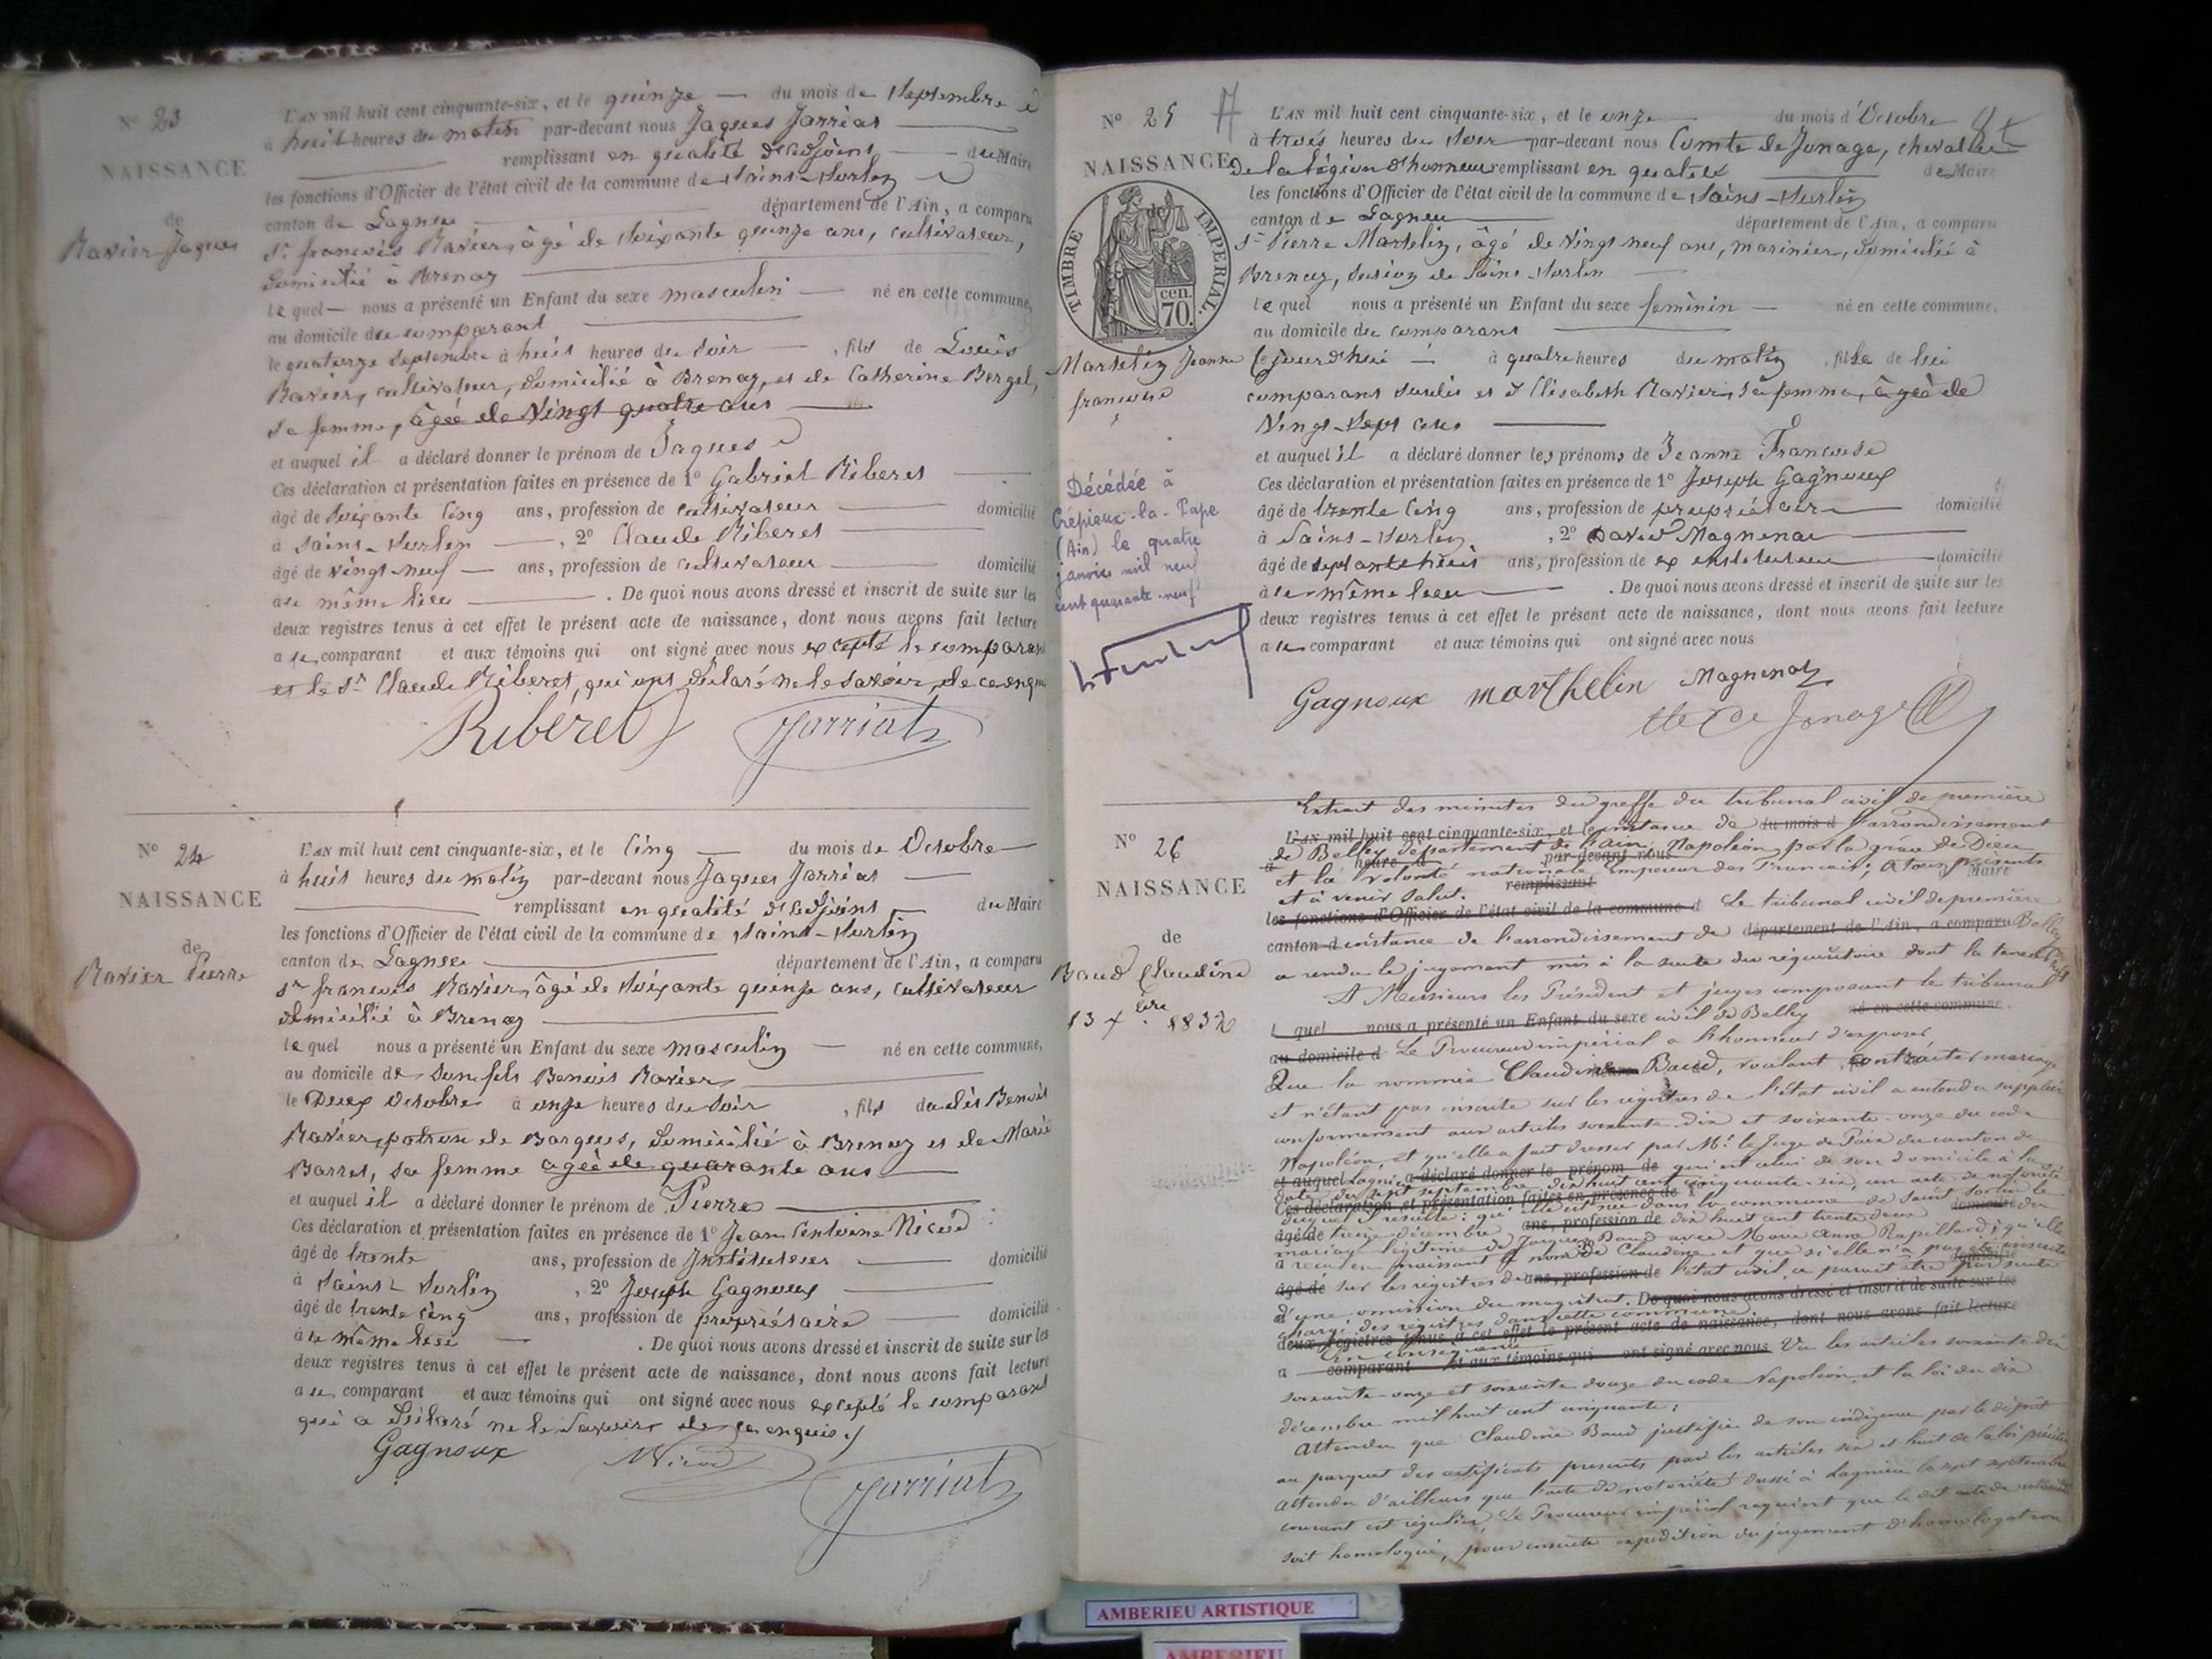 N° 23
NAISSANCE
de
Ravier Jaques
L'AN mil huit cent cinquante-six, et le quinze du mois de Septembre
à huit heures du matin par-devant nous Jaques Jarriat
remplissant en qualité d'adjoint du Maire
les fonctions d'Officier de l'état civil de la commune de Saint-Sorlin
canton de Lagneu département de l'Ain, a comparu
Sr françois Ravier, âgé de soixante quinze ans, cultivateur,
domicilié à Brenaz
lequel nous a présenté un Enfant du sexe masculin né en cette commune,
au domicile du comparant
le quatorze Septembre à huit heures du soir, fils de Louis
Ravier, cultivateur, domicilié à Brenaz, et de Catherine Berget,
sa femme, âgée de vingt quatre ans
et auquel il a déclaré donner le prénom de Jaques
Ces déclaration et présentation faites en présence de 1° Gabriel Riberet
âgé de soixante cinq ans, profession de cultivateur domicilié
à Saint-Sorlin, 2° Claude Riberet
âgé de vingt-neuf ans, profession de cultivateur domicilié
au même lieu. De quoi nous avons dressé et inscrit de suite sur les
deux registres tenus à cet effet le présent acte de naissance, dont nous avons fait lecture
au comparant et aux témoins qui ont signé avec nous excepté le comparant
et le Sr Claude Riberet, qui ont déclaré ne le savoir, de ce enquis
Ribéret Jarriat
N° 24
NAISSANCE
de
Ravier Pierre
L'AN mil huit cent cinquante-six, et le cinq du mois de Octobre
à huit heures du matin par-devant nous Jaques Jarriat
remplissant en qualité d'adjoint du Maire
les fonctions d'Officier de l'état civil de la commune de Saint-Sorlin
canton de Lagneu département de l'Ain, a comparu
Sr françois Ravier, âgé de soixante quinze ans, cultivateur
domicilié à Brenaz
lequel nous a présenté un Enfant du sexe masculin né en cette commune,
au domicile de son fils Benoit Ravier
le Deux Octobre à onze heures du soir, fils dudit Benoit
Ravier, patron de barques, domicilié à Brenaz et de Marie
Barret, sa femme agée de quarante ans
et auquel il a déclaré donner le prénom de Pierre
Ces déclaration et présentation faites en présence de 1° Jean Antoine Nicod
âgé de trente ans, profession de Instituteur domicilié
à Saint-Sorlin, 2° Joseph Gagnoux
âgé de trente cinq ans, profession de propriétaire domicilié
au même lieu. De quoi nous avons dressé et inscrit de suite sur les
deux registres tenus à cet effet le présent acte de naissance, dont nous avons fait lecture
au comparant et aux témoins qui ont signé avec nous excepté le comparant
qui a déclaré ne le savoir de ce enquis
Gagnoux Nicod
Jarriat
N° 25
NAISSANCE
TIMBRE IMPERIAL
70 cen.
Martelin Jeanne
françoise
Décédée à
Crépieux-la-Pape
(Ain) le quatre
janvier mil neuf
cent quarante-neuf
L'AN mil huit cent cinquante-six, et le onze du mois d'Octobre
à trois heures du soir par-devant nous Comte de Jonage, chevalier
de la légion d'honneur remplissant en qualité de Maire
les fonctions d'Officier de l'état civil de la commune de Saint-Sorlin
canton de Lagneu département de l'Ain, a comparu
Sr Pierre Martelin, âgé de vingt neuf ans, marinier, domicilié à
Brenaz, section de Saint-Sorlin
lequel nous a présenté un Enfant du sexe feminin né en cette commune,
au domicile du comparant
cejourd'hui à quatre heures du matin, fille de lui
comparant susdit et d'Elisabeth Ravier, sa femme, âgée de
vingt-sept ans
et auquel il a déclaré donner les prénoms de Jeanne Francoise
Ces déclaration et présentation faites en présence de 1° Joseph Gagnoux
âgé de trente cinq ans, profession de propriétaire domicilié
à Saint-Sorlin, 2° David Magnenat
âgé de septante huit ans, profession de ex instituteur domicilié
au même lieu. De quoi nous avons dressé et inscrit de suite sur les
deux registres tenus à cet effet le présent acte de naissance, dont nous avons fait lecture
au comparant et aux témoins qui ont signé avec nous
Gagnoux marthelin Magnenat
Cte de Jonage
N° 26
NAISSANCE
de
Baud Claudine
13 Xbre 1832
Extrait des minutes du greffe du tribunal civil de première
L'AN mil huit cent cinquante-six, et le instance de du mois d l'arrondissement
de Belley département de l'ain, Napoléon, par la grâce de Dieu
à heure d par-devant nous
et la volonté nationale Empereur des Français; A tous présents
remplissant Maire
et à venir Salut.
les fonctions d'Officier de l'état civil de la commune d Le tribunal civil de première
canton d instance de l'arrondissement de département de l'Ain, a comparu Belley
a rendu le jugement mis à la suite du réquisitoire dont la teneur
A Messieurs les Président et juges composant le tribunal
l quel nous a présenté un Enfant du sexe civil de Belley né en cette commune,
au domicile d Le Procureur impérial a l'honneur d'exposer
Que la nommée Claudine Baud, voulant contracter mariage
et n'étant pas inscrite sur les registres de l'état civil a entendu suppléer
conformément aux articles soixante-dix et soixante-onze du code
Napoléon, et qu'elle a fait dresser par Mr le Juge de Paix du canton de
et auquel Lagnieu a déclaré donner le prénom de qui est celui de son domicile à la
date du sept septembre dix huit cent cinquante-six, un acte de notoriété
Ces déclaration et présentation faites en présence de 1°
duquel il résulte: qu'elle est née dans la commune de Saint Sorlin le
âgé de treize décembre ans, profession de dix huit cent trente deux domicilié du
mariage légitime de Jacques Baud avec Marie Anne Rapillard; qu'elle
a reçu en naissant le nom de Claudine et que si elle n'a pas été inscrite
âgé de sur les registres de ans, profession de l'état civil, ce parait être par suite
d'une omission du magistrat. De quoi nous avons dressé et inscrit de suite sur les
chargé des registres dans cette commune.
deux registres tenus à cet effet le présent acte de naissance, dont nous avons fait lecture
En conséquence
a comparant et aux témoins qui ont signé avec nous Vu les articles soixante-dix
soixante-onze et soixante douze du code Napoléon, et la loi du dix
décembre mil huit cent cinquante;
Attendu que Claudine Baud justifie de son indigence par le dépôt
au parquet des certificats prescrits par les articles six et huit de la loi précitée
Attendu d'ailleurs que l'acte de notoriété dressé à Lagnieu le sept septembre
courant est régulier, Le Procureur impérial requiert que le dit acte de notoriété
soit homologué, pour ensuite expédition du jugement d'homologation
AMBERIEU ARTISTIQUE
AMBERIEU